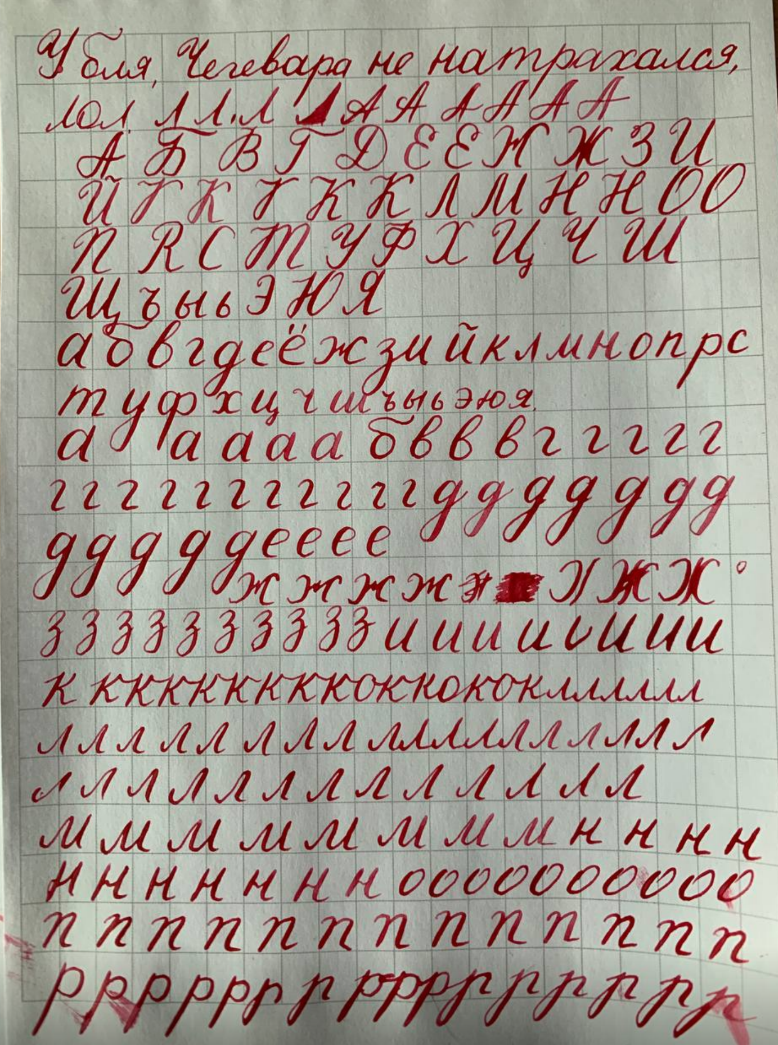 У бля, Чегевара не натрахался,
лол. Л Л Л Л А А А А А А
А Б В Г Д Е Ё Ж Ж З И
Й К К К К К Л М Н Н О О
П R С Т У Ф Х Ц Ч Ш
Щ ъ ы ь Э Ю Я
а б в г д е ё ж з и й к л м н о п р с
т у ф х ц ч ш ъ ы ь э ю я
а а а а а б в в в г г г г г
г г г г г г г г г г г г д д д д д д д
д д д д д е е е е
ж ж ж ж ж Ж Ж
з з з з з з з з з з з и и и и и и и и
к к к к к к к к к о к к о к о к л л л л л л
л л л л л л л л л л л л л л л л л л л
л л л л л л л л л л л л л л
м м м м м м м м н н н н
н н н н н н н о о о о о о о о о о о
п п п п п п п п п п п п п
р р р р р р р р р р р р р р р р р р